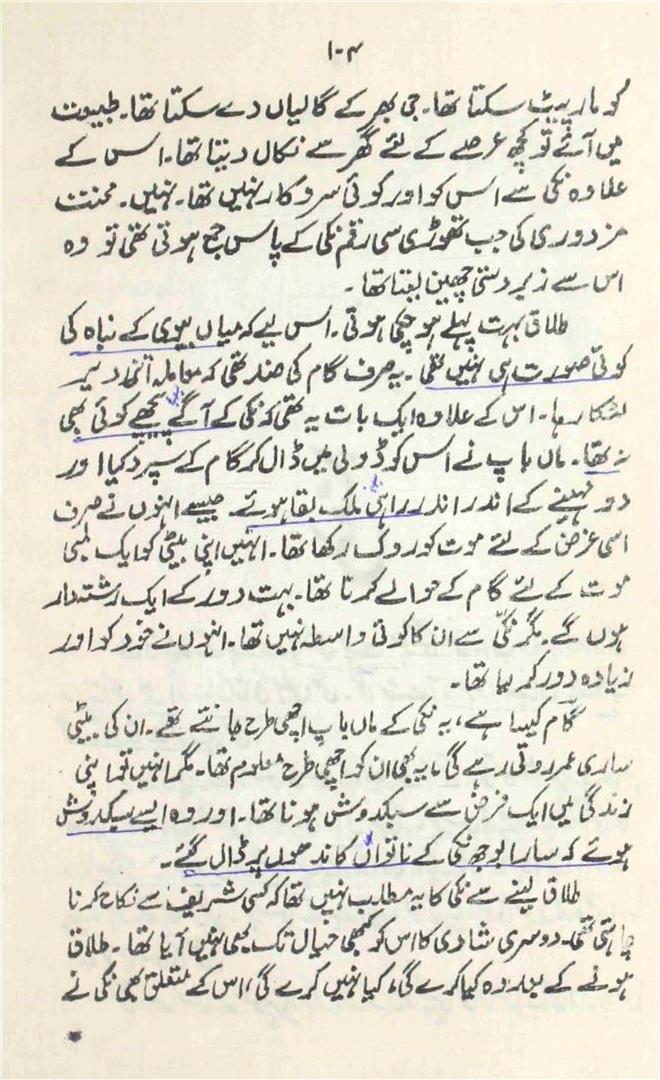 ۱۰۴
کو مار پیٹ سکتا تھا۔ جی بھر کے گالیاں دے سکتا تھا۔ طبیعت
میں آئے تو کچھ عرصے کے لئے گھر سے نکال دیتا تھا۔ اس کے
علاوہ نکی سے اس کو اور کوئی سروکار نہیں تھا۔ نہیں۔ محنت
مزدوری کی جب تھوڑی سی رقم نکی کے پاس جمع ہوتی تھی تو وہ
اس سے زبردستی چھین لیتا تھا۔
طلاق بہت پہلے ہو چکی ہوتی۔ اس لیے کہ میاں بیوی کے نباہ کی
کوئی صورت ہی نہیں تھی۔ یہ صرف گام کی ضد تھی کہ معاملہ اتنی دیر
لٹکا رہا۔ اس کے علاوہ ایک بات یہ تھی کہ نکی کے آگے پیچھے کوئی بھی
نہ تھا۔ ماں باپ نے اس کو ڈولی میں ڈال کر گام کے سپرد کیا اور
دو مہینے کے اندر اندر راہیٔ ملک بقا ہوئے جیسے انہوں نے صرف
اسی غرض کے لئے موت کو روک رکھا تھا۔ انہیں اپنی بیٹی کو ایک لمبی
موت کے لئے گام کے حوالے کرنا تھا۔ بہت دور کے ایک رشتہ دار
ہوں گے۔ مگر نکی سے ان کا کوئی واسطہ نہیں تھا۔ انہوں نے خود کو اور
زیادہ دور کر لیا تھا۔
گام کیسا ہے، یہ نکی کے ماں باپ اچھی طرح جانتے تھے۔ ان کی بیٹی
ساری عمر روتی رہے گی یہ بھی ان کو اچھی طرح معلوم تھا۔ مگر انہیں تو اپنی
زندگی میں ایک فرض سے سبکدوش ہونا تھا۔ اور وہ ایسے سبکدوش
ہوئے کہ سارا بوجھ نکی کے ناتواں کاندھوں پر ڈال گئے۔
طلاق لینے سے نکی کا یہ مطلب نہیں تھا کہ کسی شریف سے نکاح کرنا
چاہتی تھی۔ دوسری شادی کا اس کو کبھی خیال تک بھی نہیں آیا تھا۔ طلاق
ہونے کے بعد وہ کیا کرے گی، کیا نہیں کرے گی، اس کے متعلق بھی نکی نے